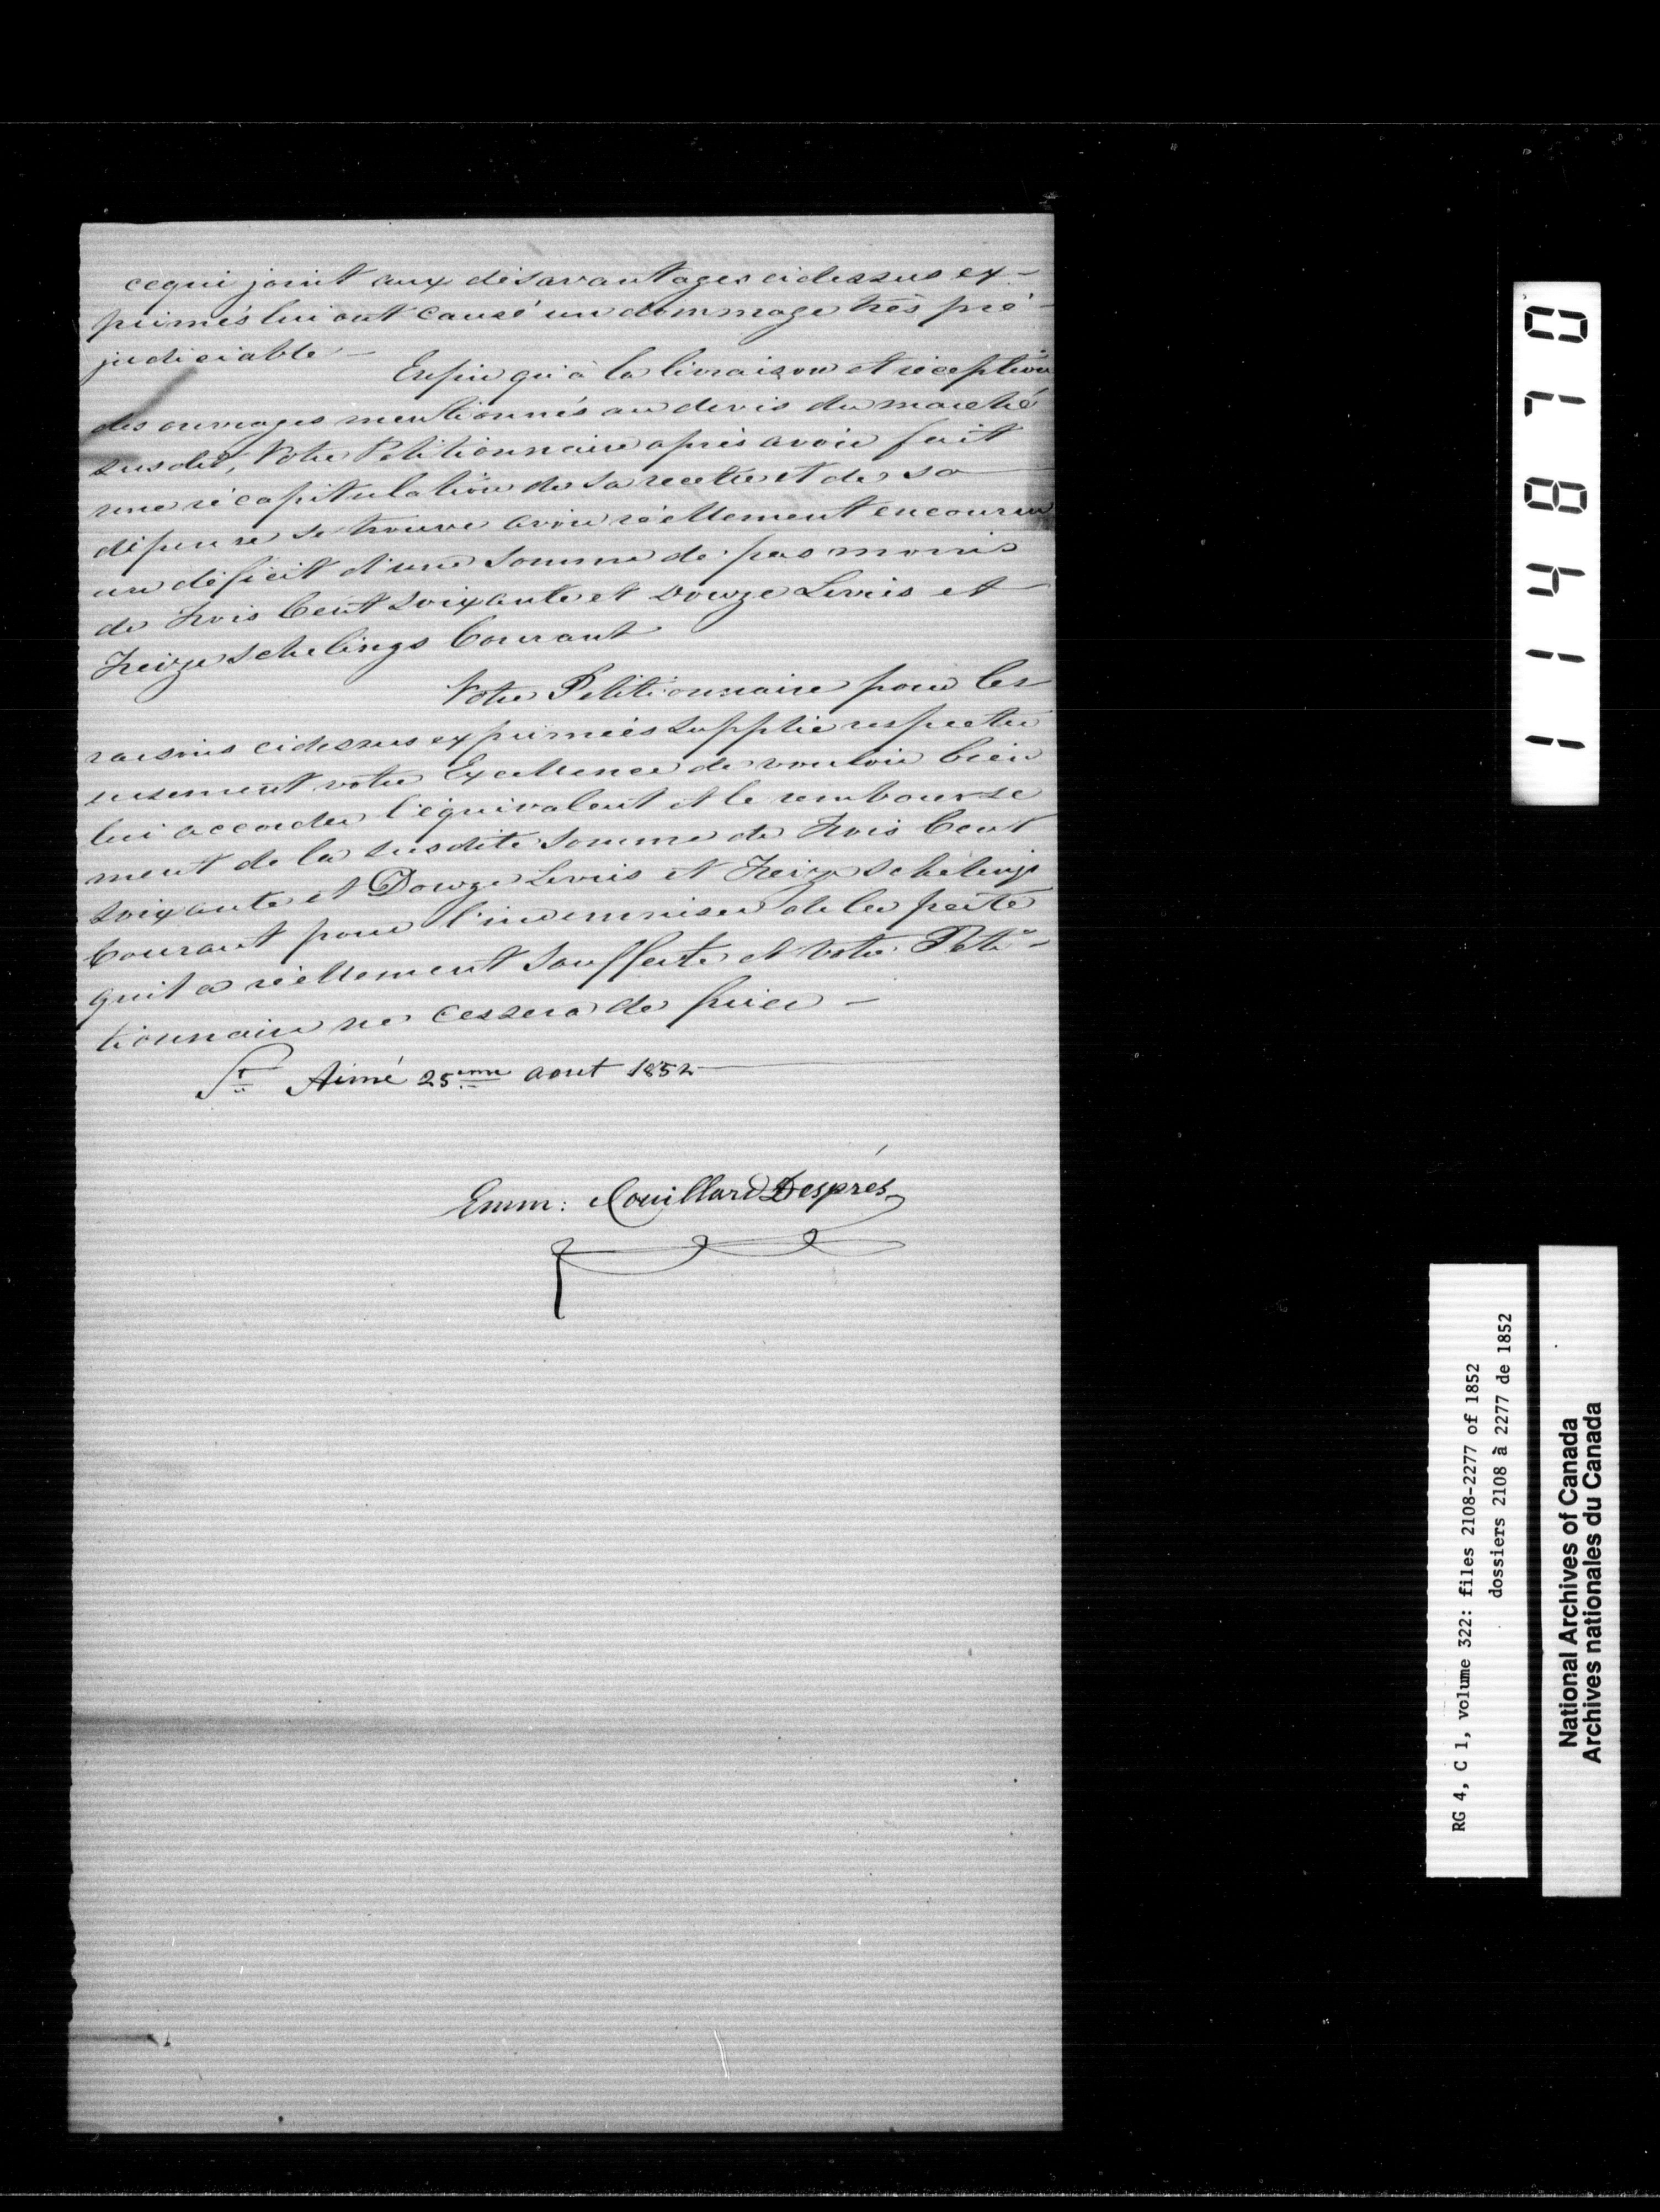 cequi joint aux désavantages cidessus ex-
primés lui ont causé un dommage très pré-
judiciable —
Enfin qu'à la livraison et réception
des ouvrages mentionnés au devis du marché
susdit, Votre Petitionnaire après avoir fait
une récapitulation de sa recette et de sa
dépense se trouve avoir réellement encouru
un déficit d'une Somme de pas moins
de Trois Cent soixante et Douze Livres et
Treize Schelings Courant
Votre Petitionnaire pour les
raisons cidessus exprimées supplie respectu
eusement votre Excellence de vouloir bien
lui accorder l'équivalent et le rembourse
ment de la susdite Somme de Trois Cent
soixante et Douze Livres et Treize Schelings
Courant pour l'indemniser de la perte
qu'il a réellement soufferte et Votre Peti-
tionnaire ne cessera de prier —
St Aimé 25eme aout 1852
Emm: Couillard Després
114870
RG 4, C 1, volume 322: files 2108-2277 of 1852
dossiers 2108 à 2277 de 1852
National Archives of Canada
Archives nationales du Canada